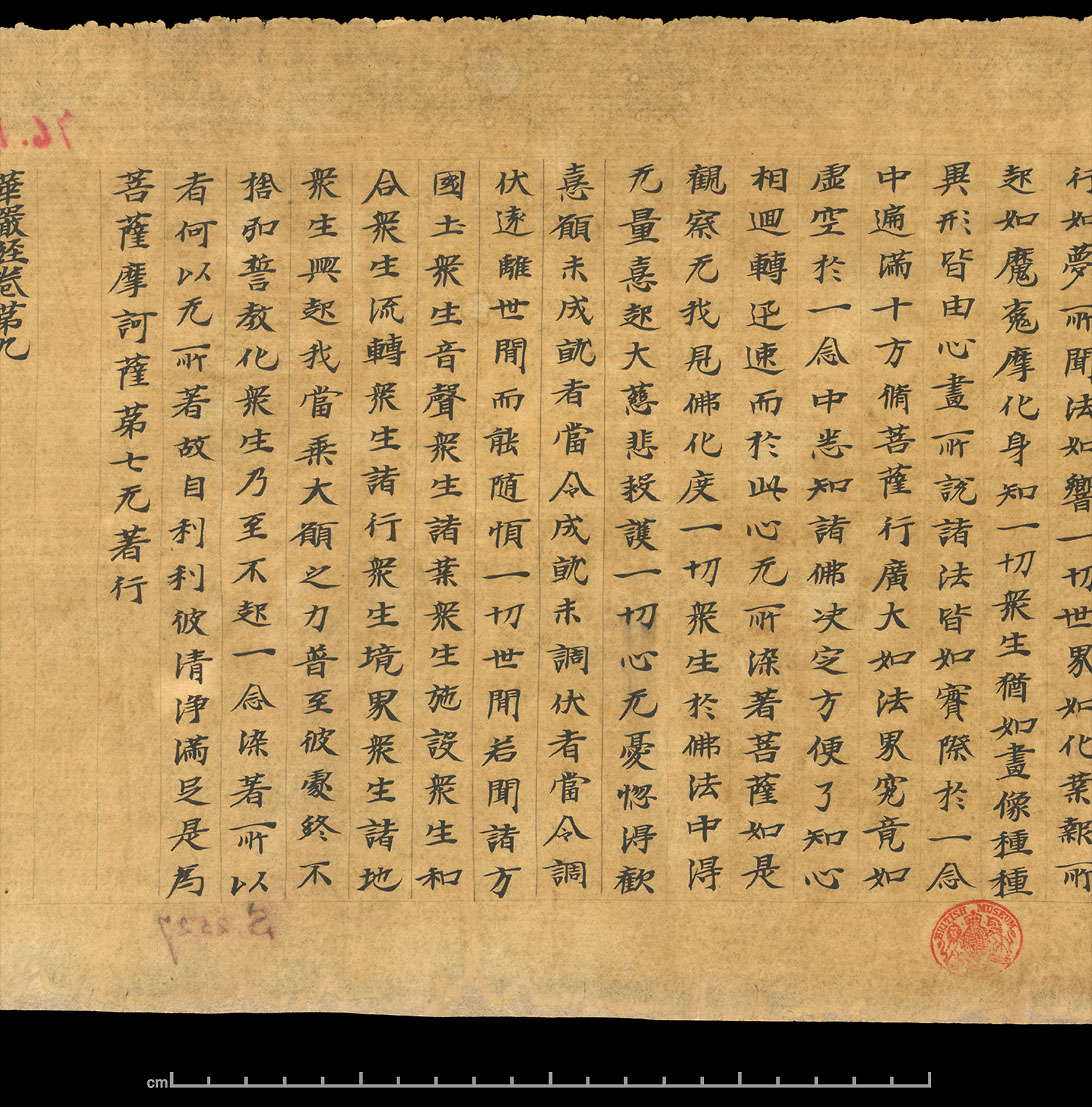 行如夢所聞法如響一切世界如化業報所
起如魔冤摩化身知一切衆生猶如畫像種種
異形皆由心畫所說諸法皆如實際於一念
中遍滿十方脩菩薩行廣大如法界究竟如
虛空於一念中悉知諸佛决定方便了知心
相迴轉迅速而於此心无所染著菩薩如是
觀察无我見佛化度一切衆生於佛法中得
无量憙起大慈悲救護一切心无憂惱得歡
憙願未成就者當令成就未調伏者當令調
伏遠離世間而能隨順一切世間若聞諸方
國土衆生音聲衆生諸業衆生施設衆生和
合衆生流轉衆生諸行衆生境界衆生諸地
衆生興起我當乗大願之力普至彼處終不
捨弘誓教化衆生乃至不起一念染著所以
者何以无所著故自利利彼清淨滿足是為
菩薩摩訶薩第七无著行
華嚴經卷第九
S 2527
BRITISH MUSEUM
cm